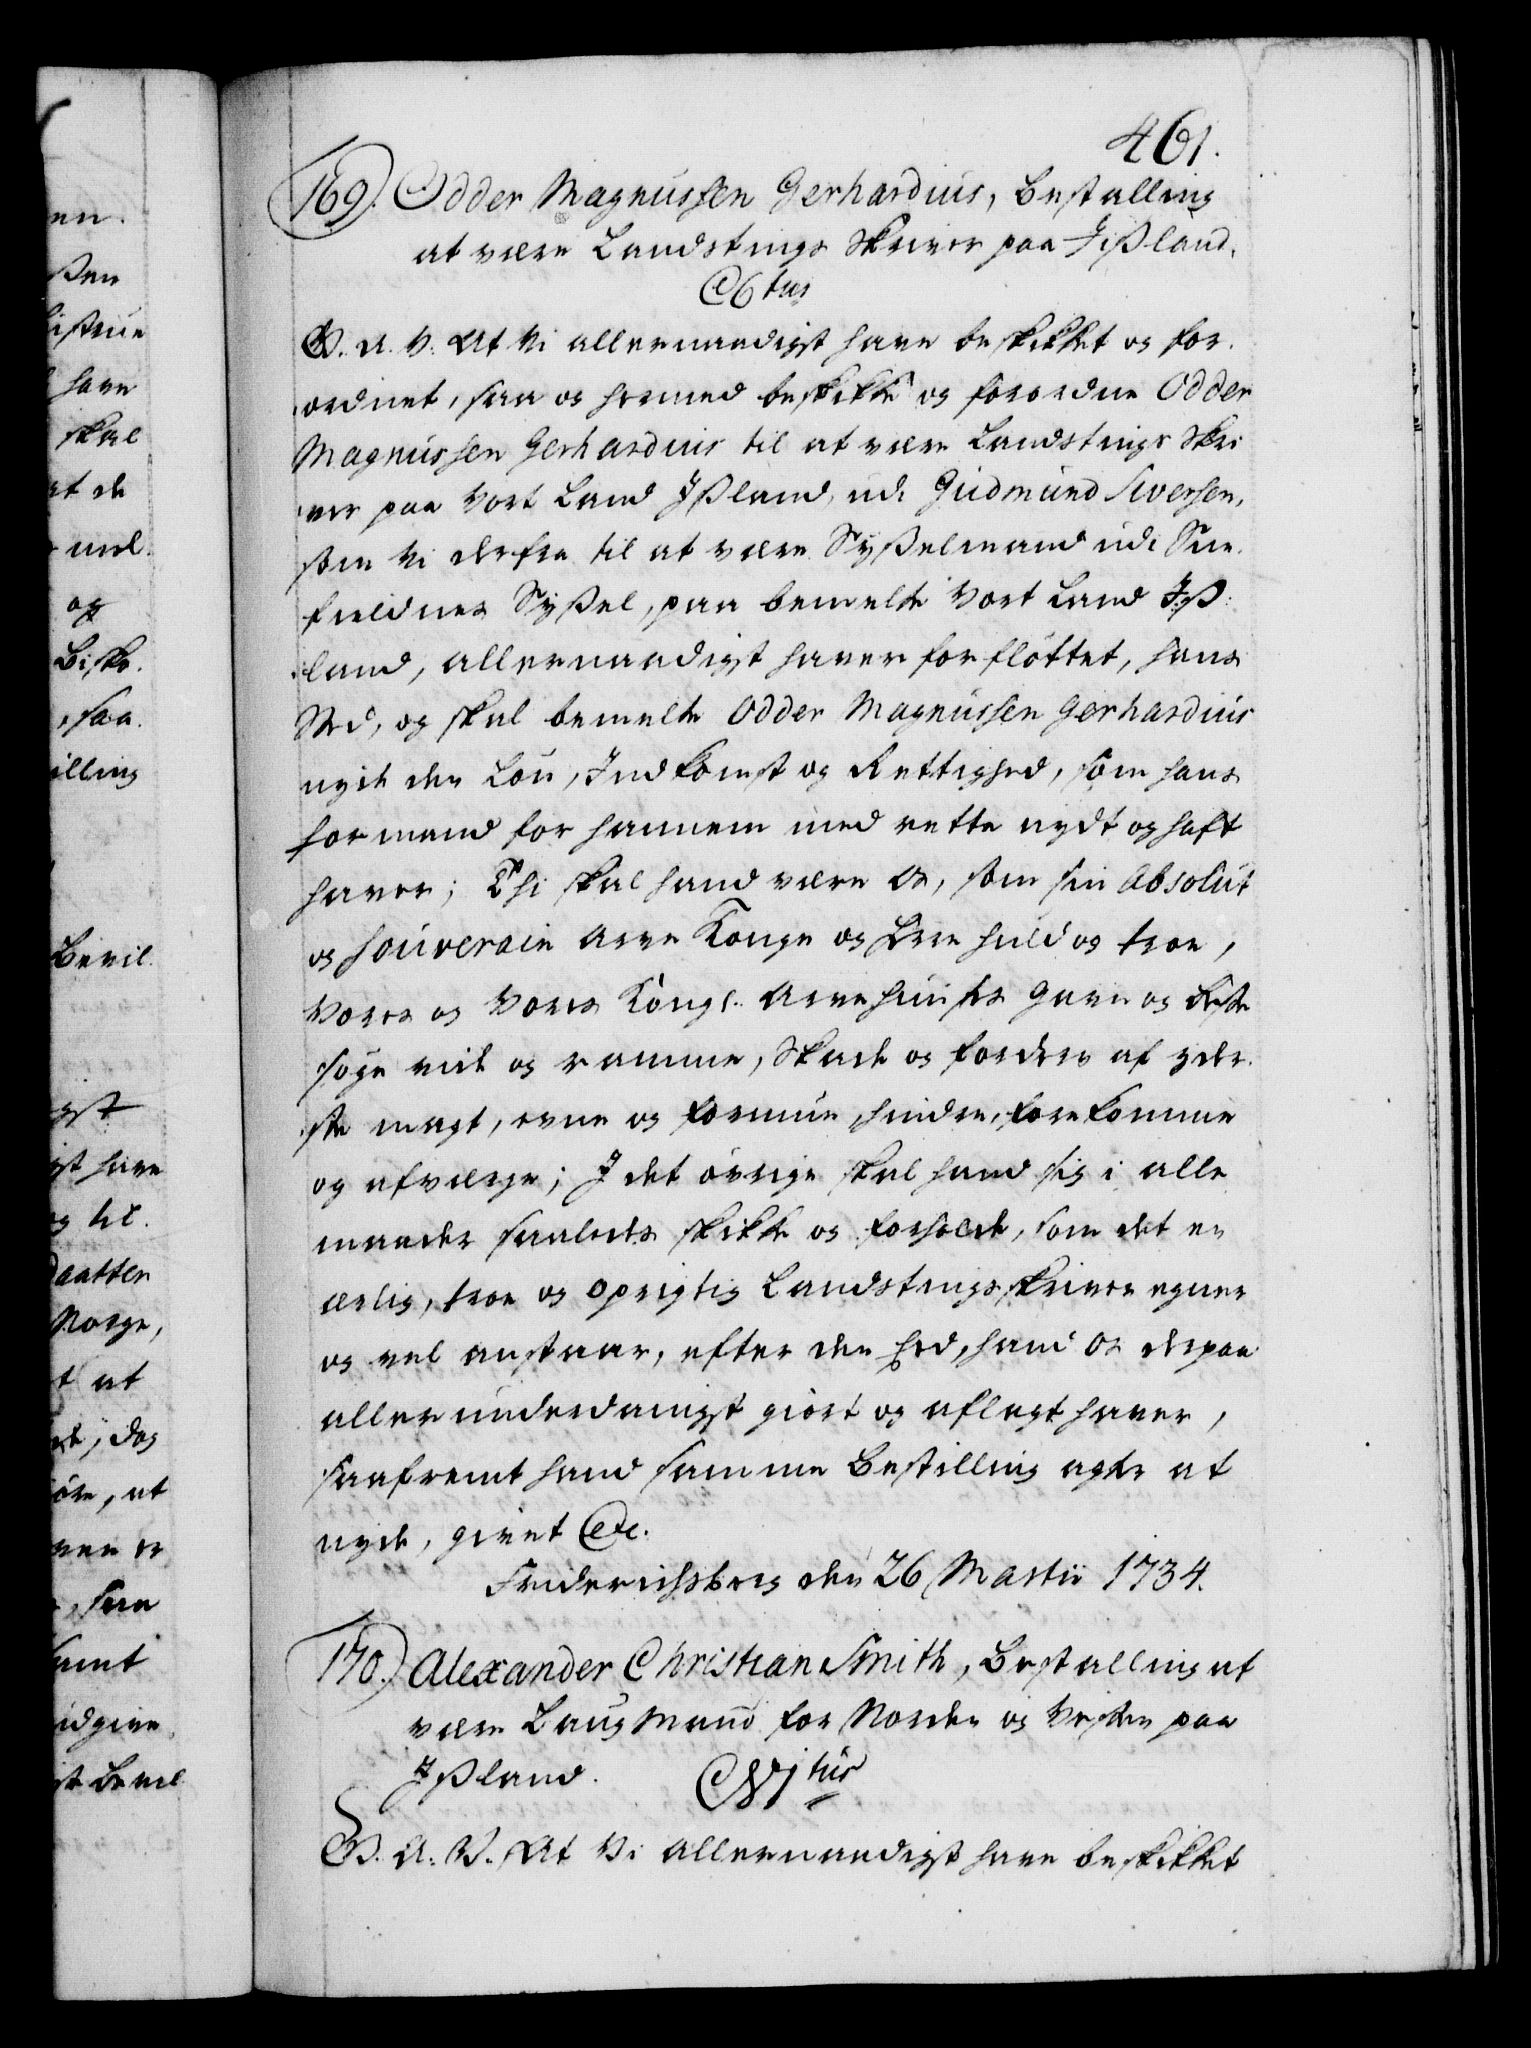 461.
169. Odder Magnussen Gerhardius, Bestalling
at være Landstings Skriver paa Jißland.
C6tus
G. A. V. At Vi allernaadigst have beskikket og for-
ordnet, saa og hermed beskikke og forordne Odder
Magnussen Gerhardius til at være Landstings Skri
ver paa Vort Land Jßland, udi Gudmund Siversen,
som Vi derfra til at være Sysselmand udi Sne-
fieldnes Syßel, paa bemelte Vort Land Jß-
land, allernaadigst haver forfløttet, hans
Sted, og skal bemelte Odder Magnussen Gerhardius
nyde den Løn, Indkomst og Rettighed, som hans
formand for hannem med rette nydt og haft
haver; Thi skal hand være Os, som sin Absolut
og Souverain Arve Konge og Herre huld og troe,
Vores og Vores Kongl. Arve Huuses Gavn og Beste
søge vide og ramme, Skade og fordærv af yder-
ste magt, evne og formue hindre, forekomme
og afværge; J det øvrige skal hand sig i alle
maader saaledes skikke og forholde, som det en
ærlig, troe og oprigtig Landstings skriver egner
og vel anstaar, efter den Eed, hand Os derpaa
allerunderdanigst giort og aflagt haver,
saafremt hand samme Bestilling agter at
nyde, givet etc.
Friderichsberg den 26 Martii 1734.
170. Alexander Christian Smith, Bestalling at
være Laug Mand for Norden og Vesten paa
Jßland. CVItus
G. A. V. At Vi allernaadigst have beskikket
en.
ßen
have
skal
at de
og
Bisko.
saa.
illing
Bevil
gst
st have
og til.
Daatter
Norge,
t at
dog
øre, at
saa
samt
udgive